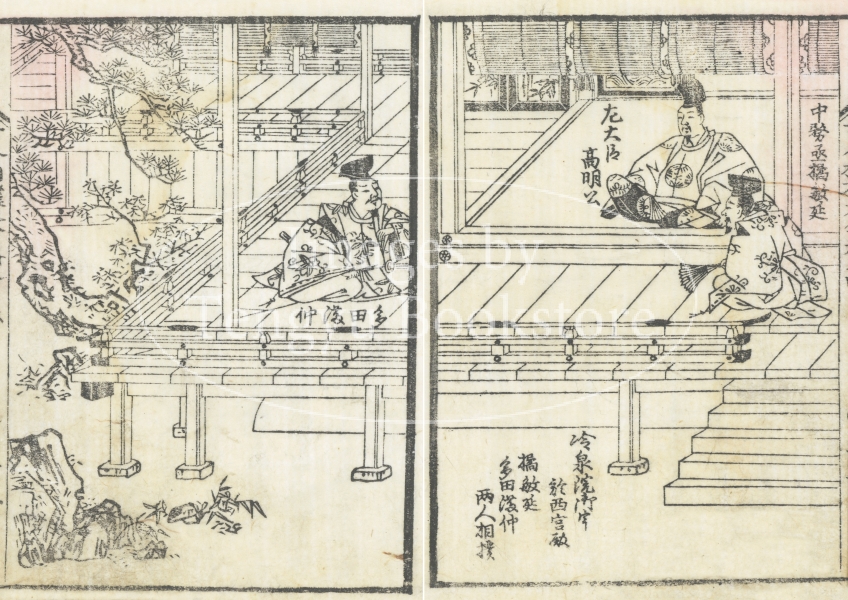 中務丞橘敏延
左大臣
高明公
多田満仲
冷泉院御宇
於西宮殿
橘敏延
多田満仲
両人相撲
Images by
Tengyu Bookstore